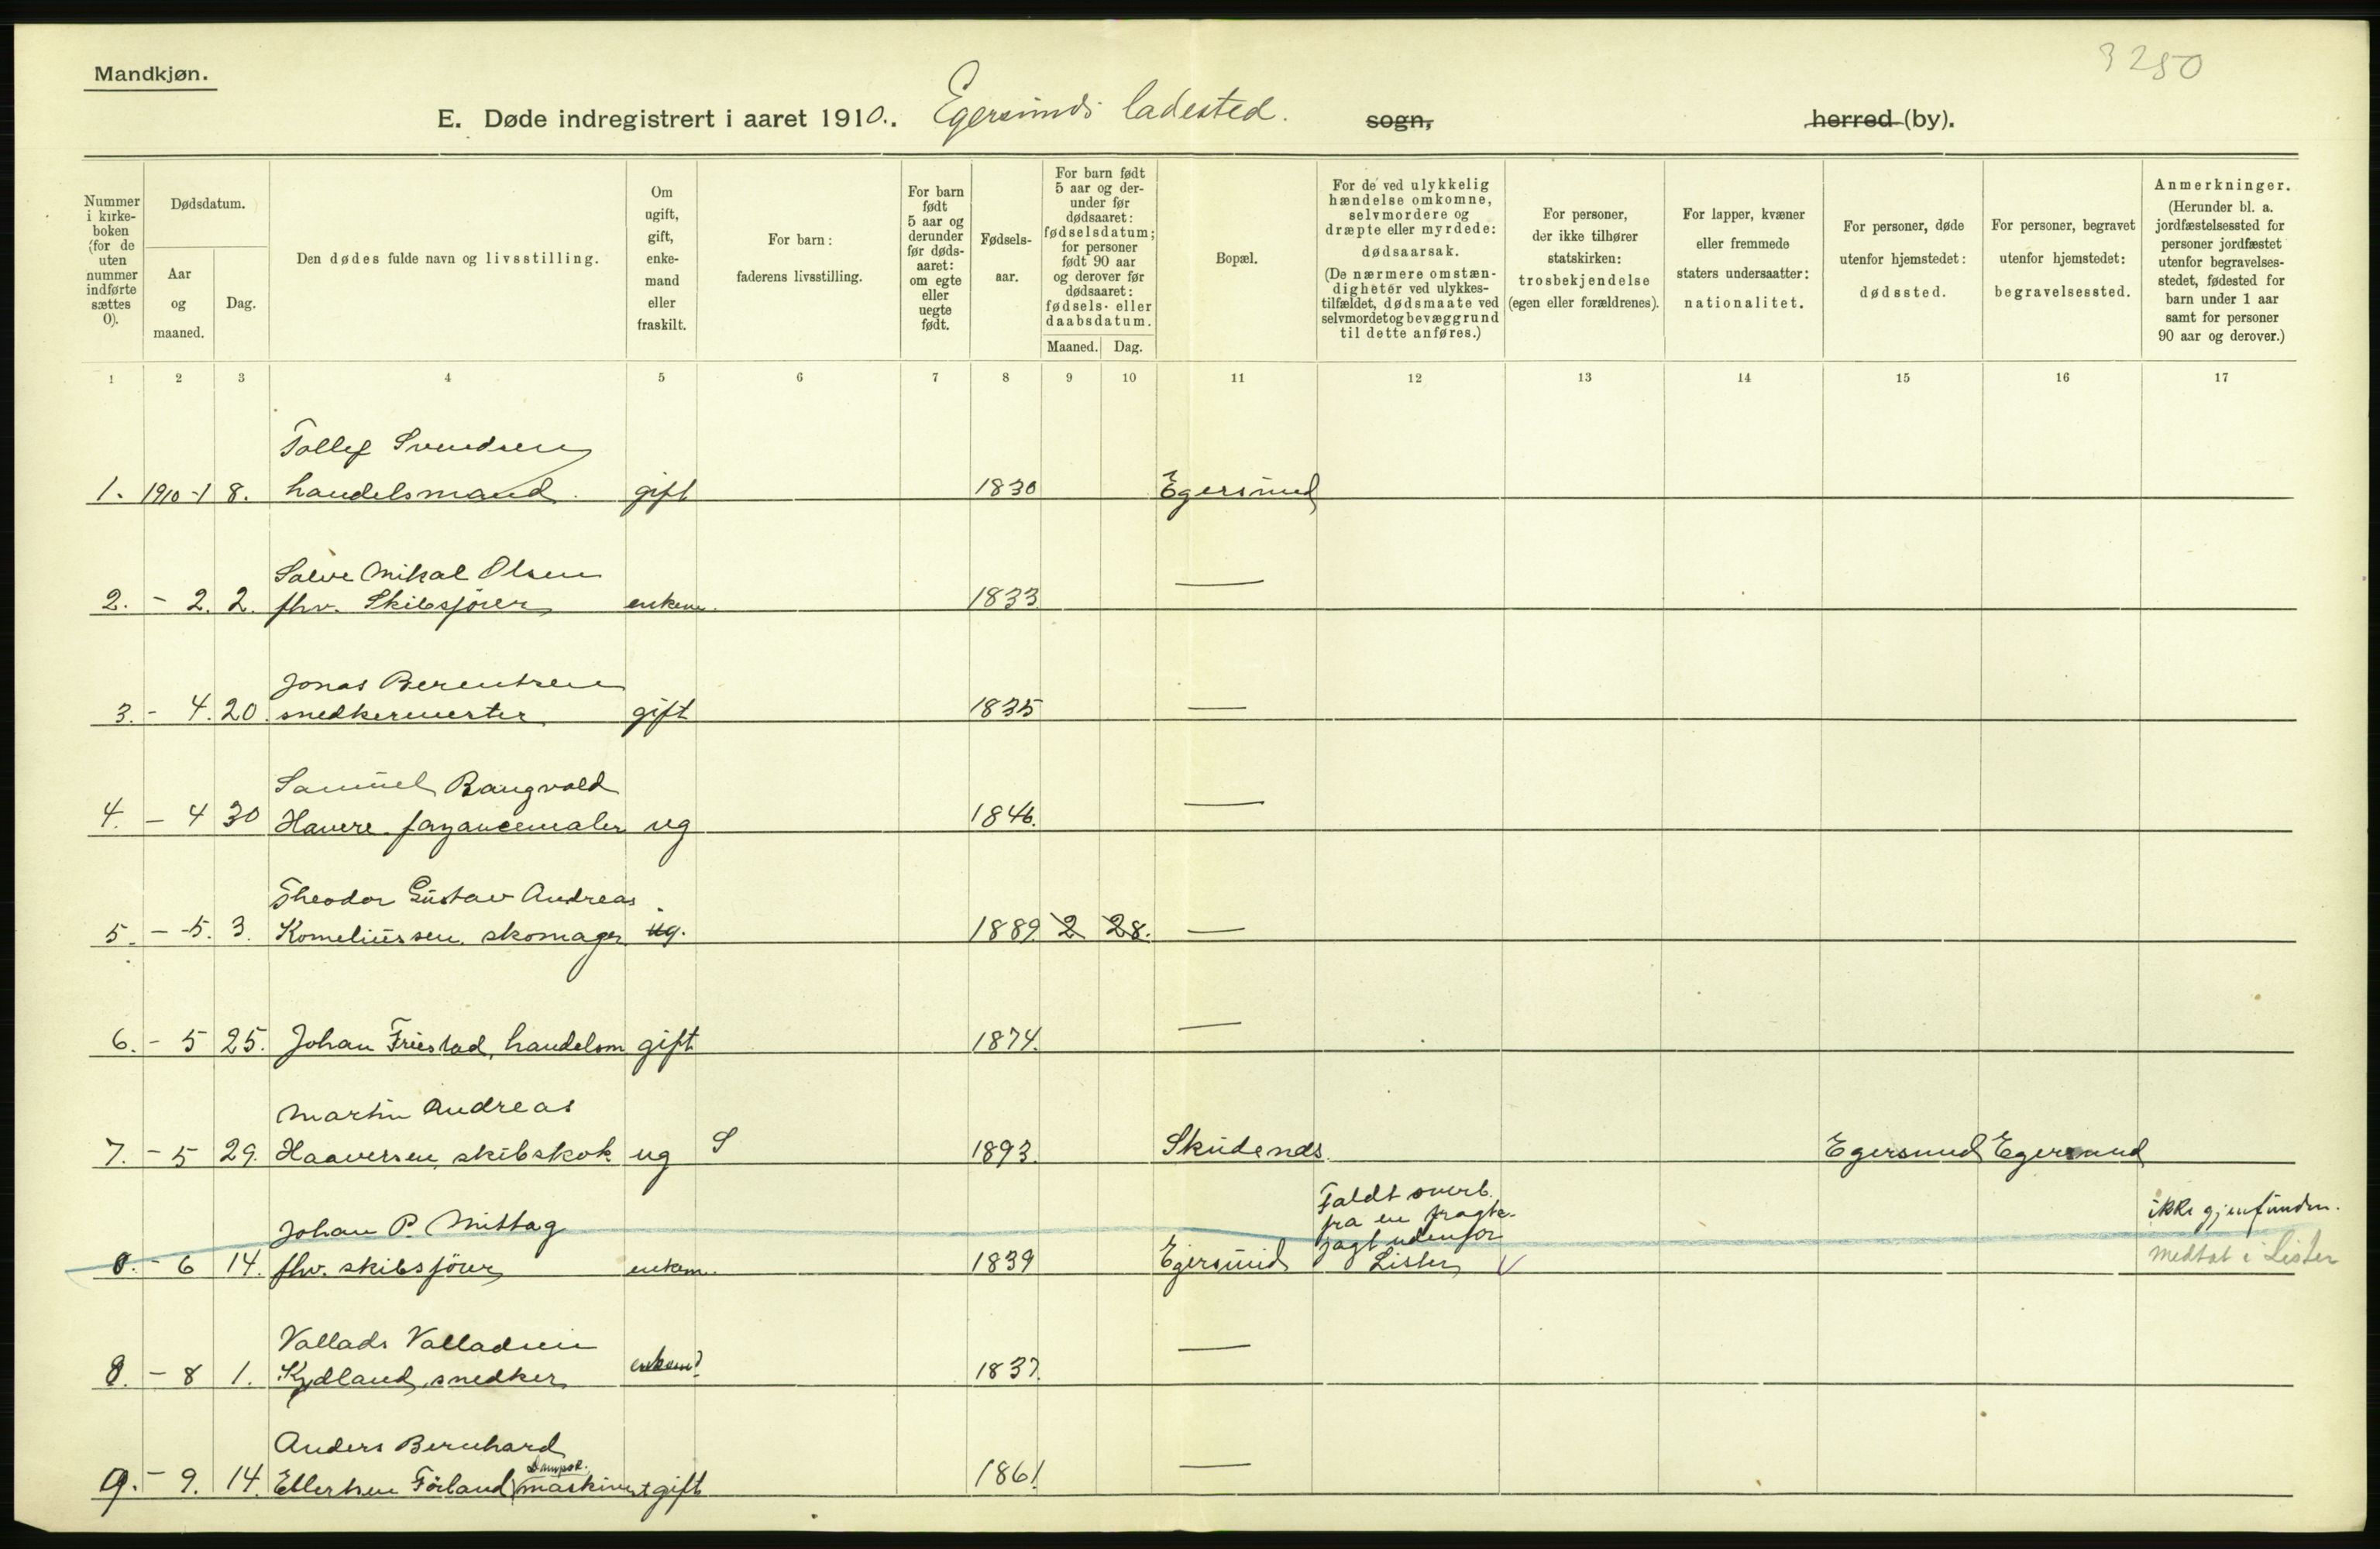 Mandkjøn.
3250
E. Døde indregistrert i aaret 1910. Egersunds ladested. sogn, herred (by).
Nummer i kirke-boken (for de uten nummer indførte sættes 0).
Dødsdatum.
Aar og maaned.
Dag.
Den dødes fulde navn og livsstilling.
Om ugift, gift, enke-mand eller fraskilt.
For barn: faderens livsstilling.
For barn født 5 aar og derunder før døds-aaret: om egte eller uegte født.
Fødsels-aar.
For barn født 5 aar og der-under før dødsaaret: fødselsdatum; for personer født 90 aar og derover før dødsaaret: fødsels- eller daabsdatum.
Maaned. Dag.
Bopæl.
For de ved ulykkelig hændelse omkomne, selvmordere og dræpte eller myrdede: dødsaarsak. (De nærmere omstæn-digheter ved ulykkes-tilfældet, dødsmaate ved selvmordet og bevæggrund til dette anføres.)
For personer, der ikke tilhører statskirken: trosbekjendelse (egen eller forældrenes).
For lapper, kvæner eller fremmede staters undersaatter: nationalitet.
For personer, døde utenfor hjemstedet: dødssted.
For personer, begravet utenfor hjemstedet: begravelsessted.
Anmerkninger. (Herunder bl. a. jordfæstelsessted for personer jordfæstet utenfor begravelses-stedet, fødested for barn under 1 aar samt for personer 90 aar og derover.)
1 2 3 4 5 6 7 8 9 10 11 12 13 14 15 16 17
Tollef Svendsen
1. 1910-1 8. handelsmand. gift 1830 Egersund
Salve Mikal Olsen
2. - 2. 2. fhv. Skibsfører enkem. 1833 —
Jonas Berentsen
3. - 4. 20. snedkermester gift 1835 —
Samuel Rangvald
4. - 4 30 Havere fayancemaler ug 1846. —
Theodor Gustav Andreas
5. - 5. 3. Korneliussen. skomager ug. 1889 2 28. —
6. - 5 25. Johan Friestad, handelsm gift 1874. —
Martin Andreas
7. - 5 29. Haaversen, skibskok ug S 1893. Skudends. Egersund Egersund
Johan P. Mittag
Faldt overb.
fra en fragte-
jagt udenfor
ikke gjenfunden.
0. - 6 14. fhv. skibsfører enkem. 1839 Egersund Lister V medtat i Lister
Vallads Valladsen
8. - 8 1. Kydland, snedker enkem? 1837. —
Anders Bernhard
Dampsk.
9. - 9. 14. Ellertsen Förland maskinist gift 1861. —